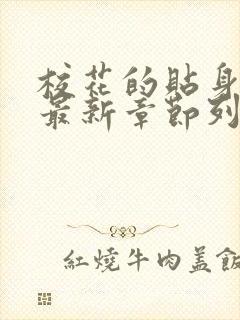 校花的貼身
最新章節列
紅燒牛肉蓋飯